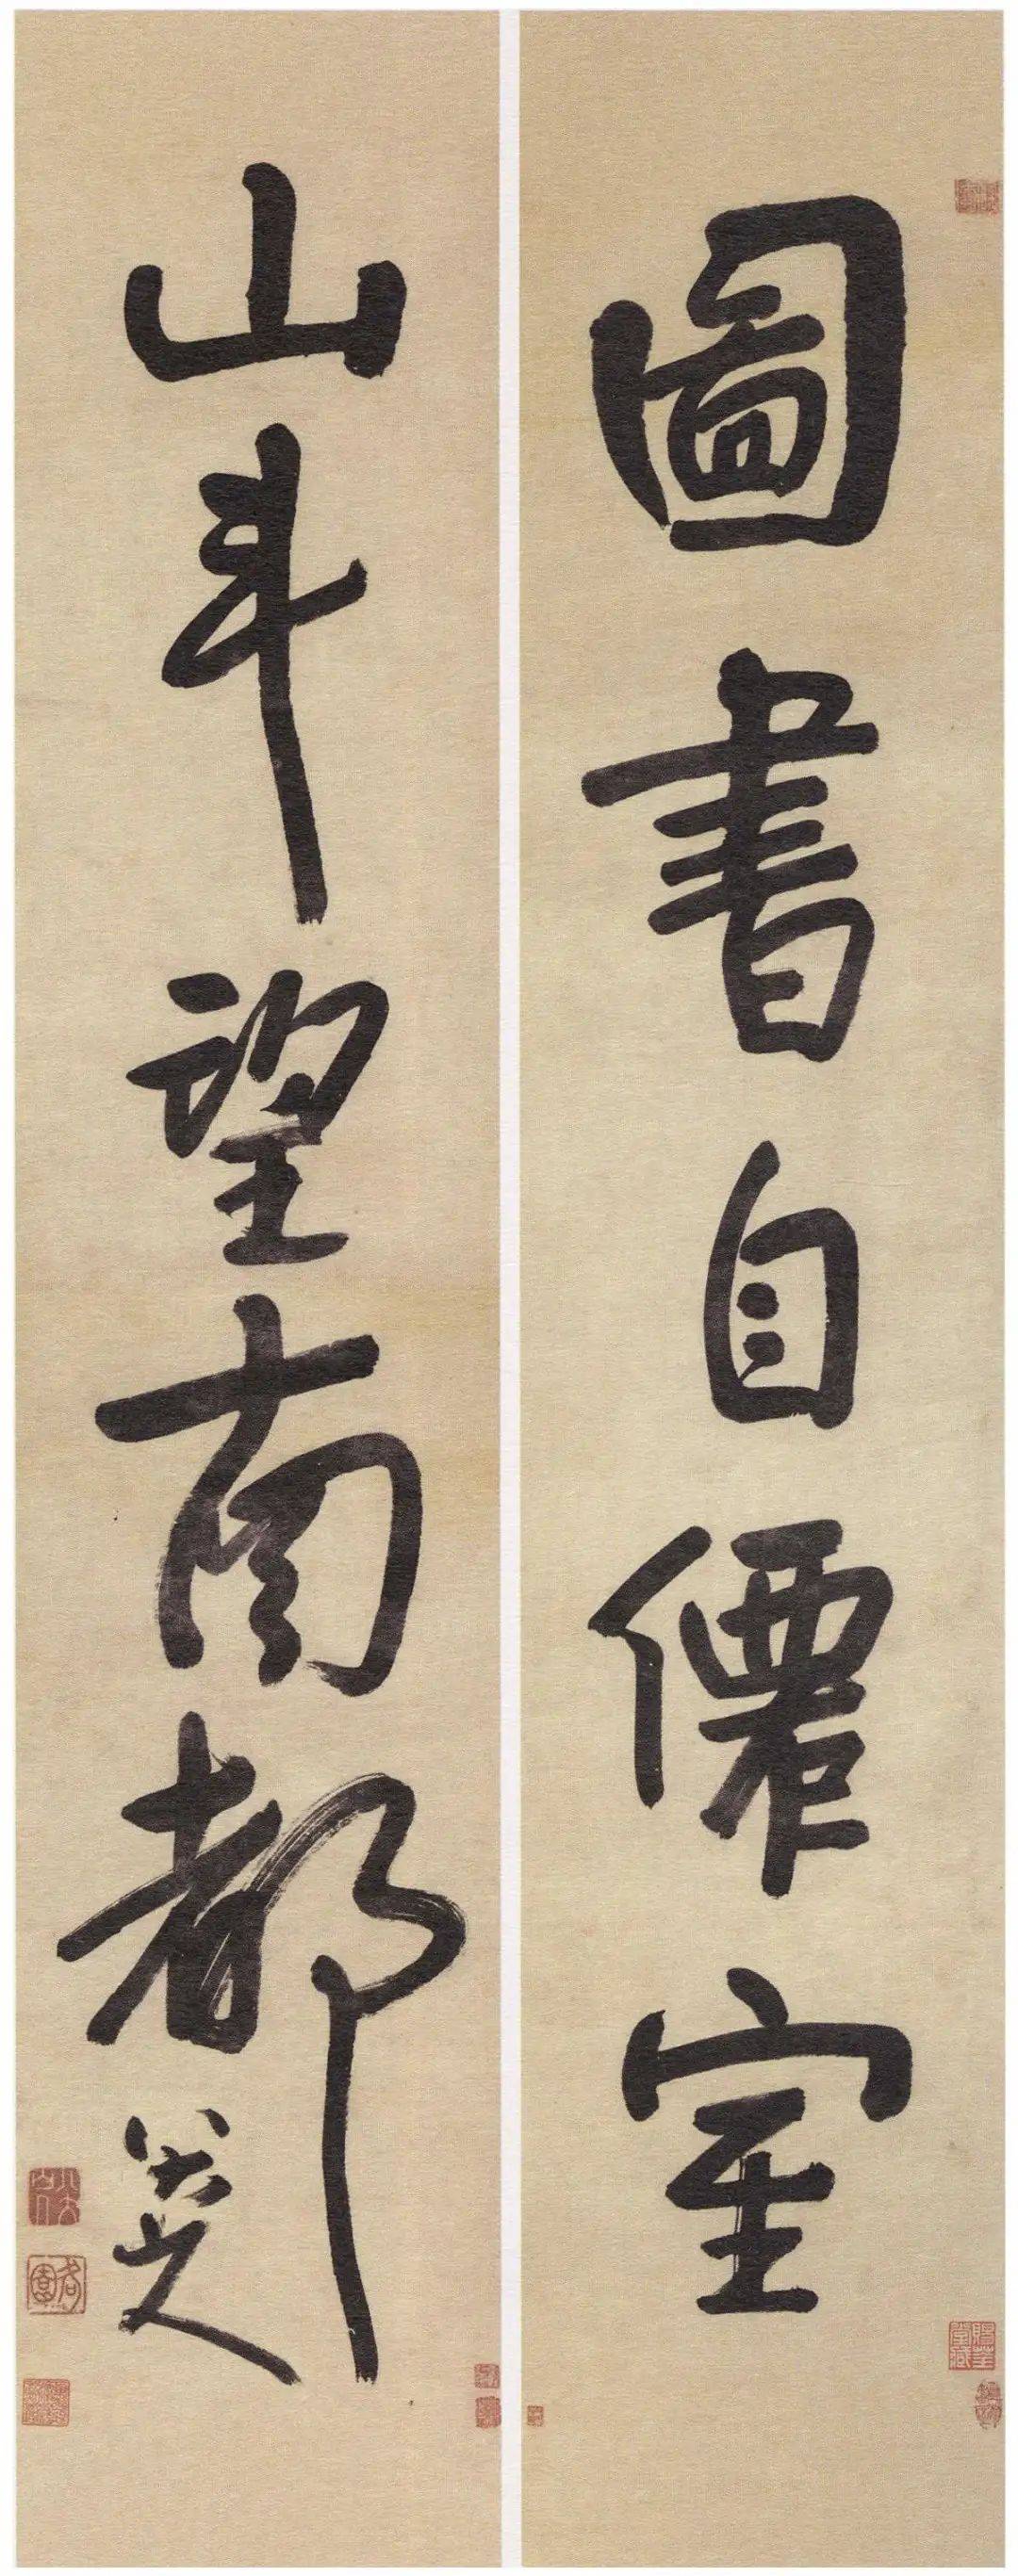 圖書自僊室
山斗望南都
八大山人